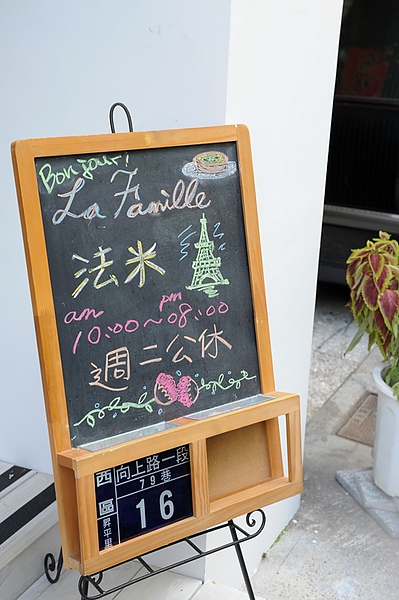 Bonjour!
La Famille
法米
am pm
10:00~08:00
週二公休
西區
昇平里
向上路一段
79巷
16